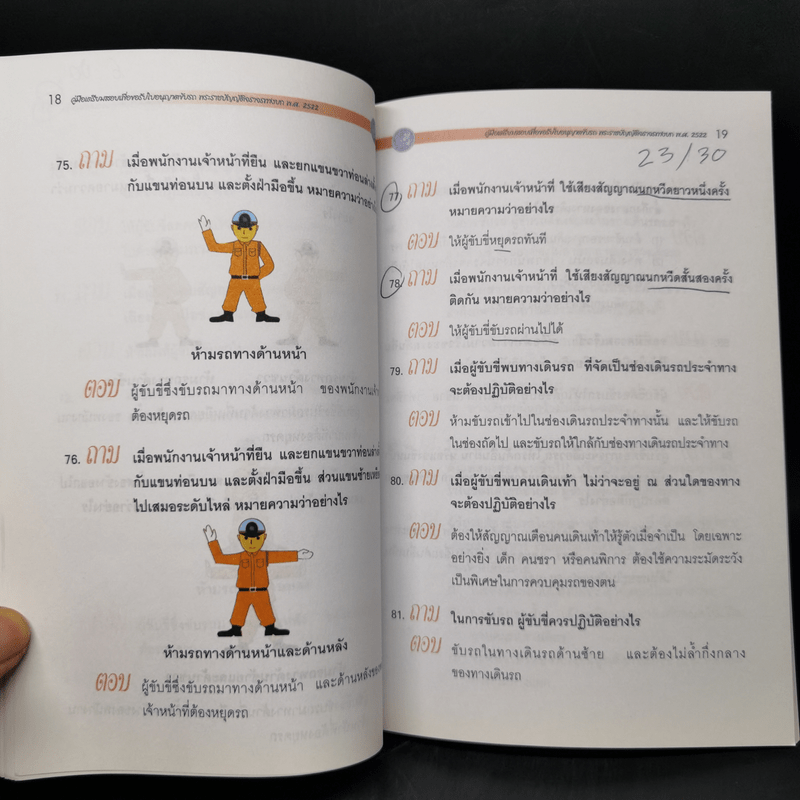 18 คู่มือเตรียมสอบเพื่อขอรับใบอนุญาตขับรถ พระราชบัญญัติจราจรทางบก พ.ศ. 2522
75. ถาม เมื่อพนักงานเจ้าหน้าที่ยืน และยกแขนขวาท่อนล่าง
กับแขนท่อนบน และตั้งฝ่ามือขึ้น หมายความว่าอย่างไร
ห้ามรถทางด้านหน้า
ตอบ ผู้ขับขี่ซึ่งขับรถมาทางด้านหน้า ของพนักงาน
ต้องหยุดรถ
76. ถาม เมื่อพนักงานเจ้าหน้าที่ยืน และยกแขนขวาท่อนล่าง
กับแขนท่อนบน และตั้งฝ่ามือขึ้น ส่วนแขนซ้าย
ไปเสมอระดับไหล่ หมายความว่าอย่างไร
ห้ามรถทางด้านหน้าและด้านหลัง
ตอบ ผู้ขับขี่ซึ่งขับรถมาทางด้านหน้า และด้านหลัง
เจ้าหน้าที่ต้องหยุดรถ
คู่มือเตรียมสอบเพื่อขอรับใบอนุญาตขับรถ พระราชบัญญัติจราจรทางบก พ.ศ. 2522 19
23/30
77. ถาม เมื่อพนักงานเจ้าหน้าที่ ใช้เสียงสัญญาณนกหวีดยาวหนึ่งครั้ง
หมายความว่าอย่างไร
ตอบ ให้ผู้ขับขี่หยุดรถทันที
78. ถาม เมื่อพนักงานเจ้าหน้าที่ ใช้เสียงสัญญาณนกหวีดสั้นสองครั้ง
ติดกัน หมายความว่าอย่างไร
ตอบ ให้ผู้ขับขี่ขับรถผ่านไปได้
79. ถาม เมื่อผู้ขับขี่พบทางเดินรถ ที่จัดเป็นช่องเดินรถประจำทาง
จะต้องปฏิบัติอย่างไร
ตอบ ห้ามขับรถเข้าไปในช่องเดินรถประจำทางนั้น และให้ขับรถ
ในช่องถัดไป และขับรถให้ใกล้กับช่องทางเดินรถประจำทาง
80. ถาม เมื่อผู้ขับขี่พบคนเดินเท้า ไม่ว่าจะอยู่ ณ ส่วนใดของทาง
จะต้องปฏิบัติอย่างไร
ตอบ ต้องให้สัญญาณเตือนคนเดินเท้าให้รู้ตัวเมื่อจำเป็น โดยเฉพาะ
อย่างยิ่ง เด็ก คนชรา หรือคนพิการ ต้องใช้ความระมัดระวัง
เป็นพิเศษในการควบคุมรถของตน
81. ถาม ในการขับรถ ผู้ขับขี่ควรปฏิบัติอย่างไร
ตอบ ขับรถในทางเดินรถด้านซ้าย และต้องไม่ล้ำกึ่งกลาง
ของทางเดินรถ